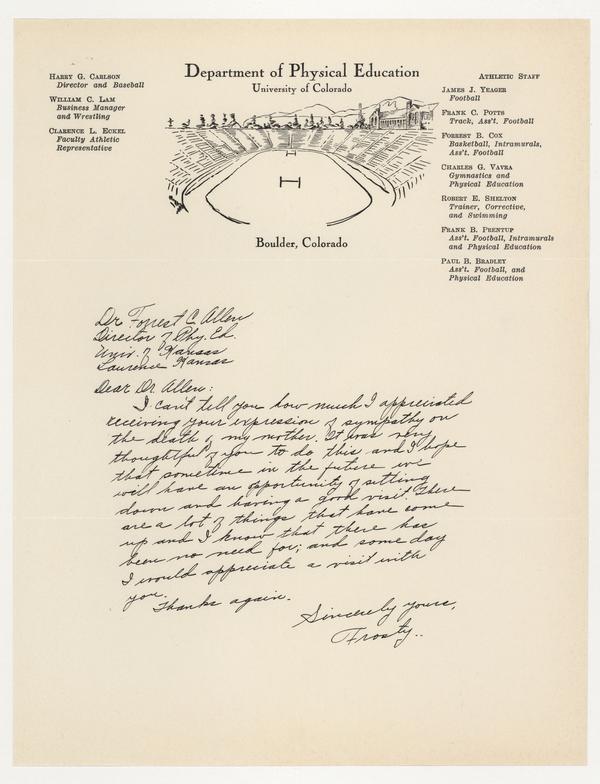 Department of Physical Education
University of Colorado
Boulder, Colorado
HARRY G. CARLSON
Director and Baseball
WILLIAM C. LAM
Business Manager
and Wrestling
CLARENCE L. ECKEL
Faculty Athletic
Representative
ATHLETIC STAFF
JAMES J. YEAGER
Football
FRANK C. POTTS
Track, Ass't. Football
FORREST B. COX
Basketball, Intramurals,
Ass't. Football
CHARLES G. VAVRA
Gymnastics and
Physical Education
ROBERT E. SHELTON
Trainer, Corrective,
and Swimming
FRANK B. PRENTUP
Ass't. Football, Intramurals
and Physical Education
PAUL B. BRADLEY
Ass't. Football, and
Physical Education
Dr Forrest C Allen
Director of Phy. Ed.
Univ. of Kansas
Laurence Kansas
Dear Dr Allen:
I can't tell you how much I appreciated
receiving your expression of sympathy on
the death of my mother. It was very
thoughtful of you to do this and I hope
that sometime in the future we
will have an opportunity of sitting
down and having a good visit. There
are a lot of things that have come
up and I know that there has
been no need for; and some day
I would appreciate a visit with
you.
Thanks again.
Sincerely yours,
Frosty..